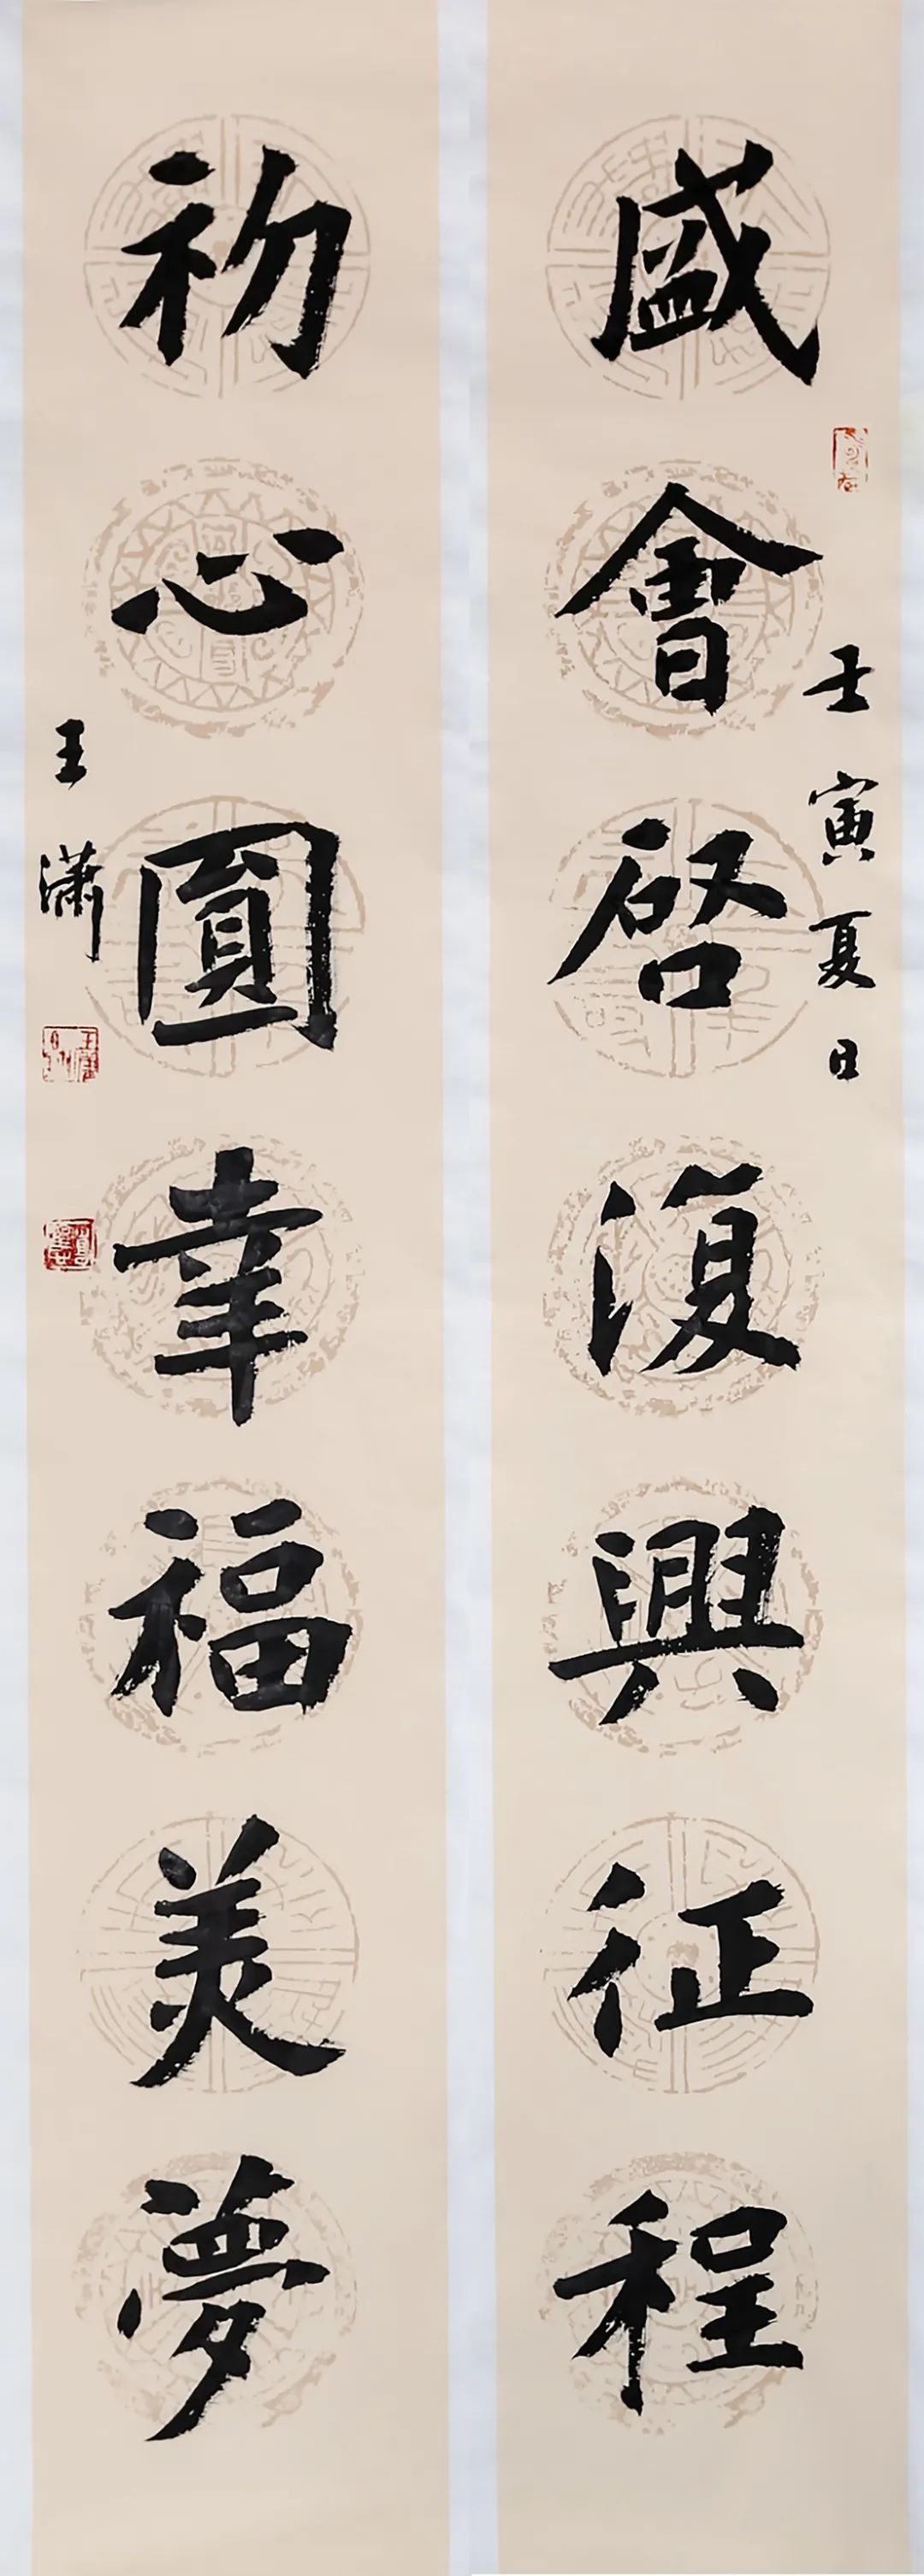 盛會啓復興征程
壬寅夏日
初心圓幸福美夢
王潇